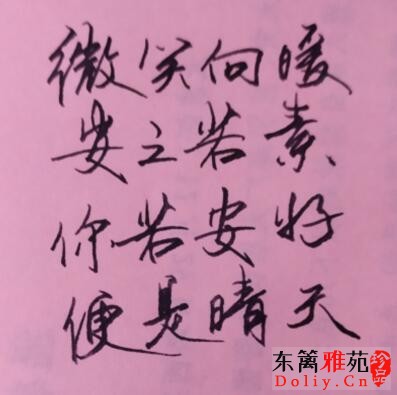 微笑向暖
安之若素
你若安好
便是晴天
东篱雅苑
珍品
Doliy.Cn